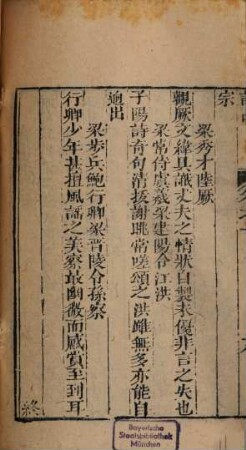 宗
梁秀才陸厥
觀厥文緯具識丈夫之情狀自製未優非言之失也
梁常侍虞羲梁建陽令江洪
子陽詩奇句清拔謝朓常嗟頌之洪雖無多亦能自
迥出
梁步兵鮑行卿梁晉陵令孫察
行卿少年甚擅風謠之美察最幽微而感賞至到耳
終
Bayerische
Staatsbibliothek
München